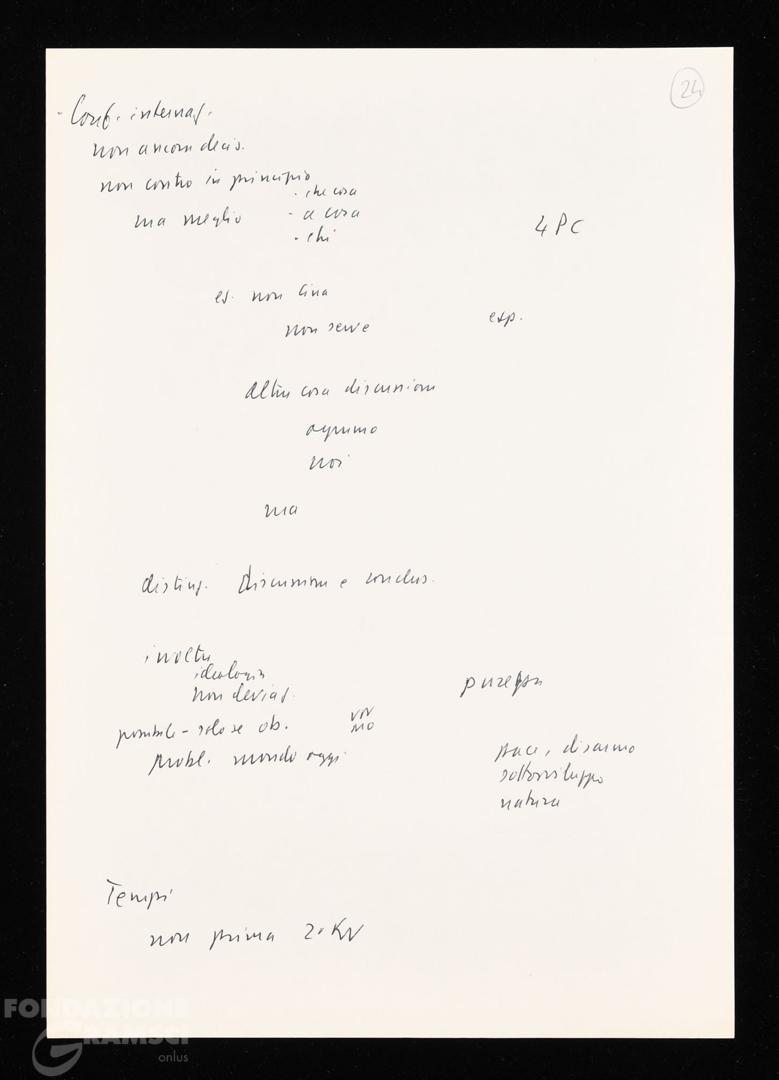 24
- Conf. internaz.
non ancora decis.
non contro in principio
- che cosa
ma meglio - a cosa
- chi
4 PC
es. non Cina
non serve
esp.
altra cosa discussione
ognuno
noi
ma
disting. discussione e conclus.
inoltre
ideologia
non deviaz.
possibile - solo se ob.
probl. mondo oggi
pace, disarmo
sottosviluppo
natura
Tempi
non prima
FONDAZIONE
GRAMSCI
onlus